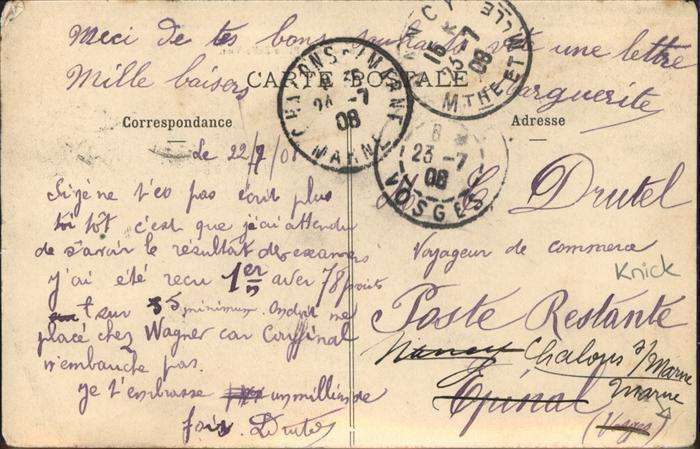 Meci de tes bons souhaits vite une lettre
Mille baisers Marguerite
CARTE POSTALE
Correspondance
Le 22/7/08
Si je ne t'es pas écrit plus
tôt c'est que j'ai attendu
de savoir le résultat des examens
j'ai été reçu 1er avec 78 points
sur 55 minimum. on doit me
placé chez Wagner car
n'embauche pas.
je t'embrasse un million de
fois. Drutel
CHALONS-S-MARNE
24 -7
08
MARNE
NANCY
15 K
23-7
08
MTHE ET M LLE
8
23 -7
08
VOSGES
Adresse
Drutel
Voyageur de commerce
Knick
Poste Restante
Nancy Chalons s/Marne
Epinal Marne
(Vosges)